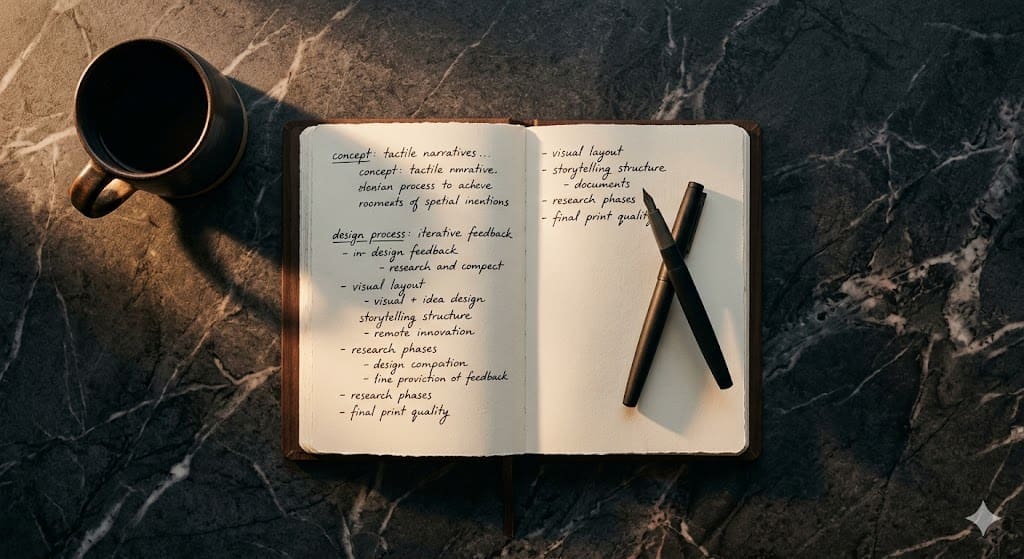 concept: tactile narratives...
concept: tactile nmrative.
denian process to achieve
rooments of spetial inentions
design process: iterative feedback
- in- design feedback
- research and compect
- visual layout
- visual + idea design
storytelling structure
- remote innovation
- research phases
- design compation
- line proviction of feedback
- research phases
- final print quality
- visual layout
- storytelling structure
- documents
- research phases
- final print quality